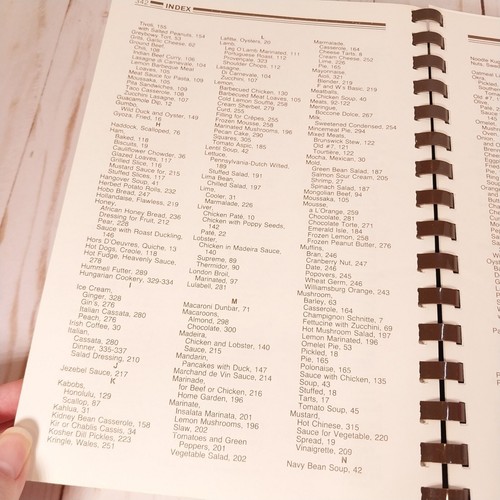 342 INDEX
Trout, 155
with Salted Peanuts, 154
Greyhoxy Tort, 53
Grits, Garlic Cheese, 62
Ground Beef,
Chili, 108
Indian Beef Curry, 106
Lasagne di Carnevale, 104
Lemon Barbeque Meat
Loaves, 105
Meat Sauce for Pasta, 109
Moussaka, 105
Pita Sandwiches, 109
Taco Casserole, 108
Zucchini Lasagne, 107
Guacamole Dip, 12
Gumbo,
Wild Duck and Oyster, 149
Gyoza, Fried, 16
Haddock, Scalloped, 76
Ham,
Baked, 118
Biscuits, 19
Cauliflower Chowder, 36
Glazed Loaves, 117
Grilled Slice, 116
Mustard Sauce for, 215
Stuffed Slices, 117
Hangover Soup, 41
Herbed Potato Rolls, 232
Hobo Bread, 247
Hollandaise, Flawless, 219
Honey,
African Honey Bread, 236
Dressing for Fruit, 212
Pear, 226
Sauce with Roast Duckling,
146
Hors D'Oeuvres, Quiche, 13
Hot Dogs, Creole, 118
Hot Fudge, Heavenly Sauce,
278
Hummell Futter, 289
Hungarian Cookery, 329-334
I
Ice Cream,
Ginger, 328
Gin's, 276
Italian Cassata, 280
Peach, 276
Irish Coffee, 30
Italian,
Cassata, 280
Dinner, 335-337
Salad Dressing, 210
J
Jezebel Sauce, 217
K
Kabobs,
Honolulu, 129
Scallop, 87
Kahlua, 31
Kidney Bean Casserole, 158
Kir or Chablis Cassis, 34
Kosher Dill Pickles, 223
Kringle, Wales, 251
L
Lafitte, Oysters, 25
Lamb,
Leg O'Lamb Marinated, 111
Portuguese Roast, 112
Provencale, 323
Shoulder Chops, 112
Lasagne,
Di Carnevale, 104
Zucchini, 107
Lemon,
Barbecued Chicken, 130
Barbecued Meat Loaves, 105
Cold Lemon Souffle, 258
Cream Sherbet, 279
Curd, 255
Filling for Crepes, 255
Frozen Mousse, 258
Marinated Mushrooms, 196
Pecan Cake, 290
Squares, 305
Tomato Aspic, 185
Lentil Soup, 42
Lettuce,
Pennsylvania-Dutch Wilted,
189
Stuffed Salad, 191
Lima Bean,
Chilled Salad, 197
Lime,
Cooler, 31
Marmalade, 226
Liver,
Chicken Paté, 10
Chicken with Poppy Seeds,
142
Paté, 22
Lobster,
Chicken in Madeira Sauce,
140
Supreme, 89
Thermidor, 90
London Broil,
Marinated, 97
Lulabell, 281
M
Macaroni Dunbar, 71
Macaroons,
Almond, 298
Chocolate, 300
Madeira,
Chicken and Lobster, 140
Sauce, 215
Mandarin,
Pancakes with Duck, 147
Marchand de Vin Sauce, 214
Marinade,
for Beef or Chicken, 216
Home Garden, 196
Marinate,
Insalata Marinata, 201
Lemon Mushrooms, 196
Slaw, 202
Tomatoes and Green
Peppers, 201
Vegetable Salad, 202
Marmalade,
Casserole, 164
Cheese Tarts, 8
Cream Cheese, 252
Lime, 226
Pie, 165
Mayonnaise
Aioli, 321
Blender, 219
F and W's Basic, 219
Meatballs,
Chicken Soup, 40
Meats, 92-122
Meringue,
Boccone Dolce, 267
Milk,
Sweetened Condensed, 254
Mincemeat Pie, 294
Mixed Meats,
Brunswick Stew, 122
Old #7, 121
Tourtière, 122
Mocha, Mexican, 30
Mold,
Green Bean Salad, 187
Salmon Sour Cream, 205
Shrimp, 27
Spinach Salad, 187
Mongolian Beef, 94
Moussaka, 105
Mousse,
a L'Orange, 259
Chocolate, 281
Chocolate Torte, 271
Emerald Isle, 184
Frozen Lemon, 258
Frozen Peanut Butter, 276
Muffins,
Bran, 246
Cranberry Nut, 247
Date, 246
Popovers, 245
Wheat Germ, 246
Williamsburg Orange, 243
Mushroom,
Barley, 63
Casserole, 164
Champignon Schnitte, 7
Fettucine with Zucchini, 69
Hot Mushroom Salad, 197
Lemon Marinated, 196
Omelet Pie, 53
Pickled, 18
Pie, 165
Polonaise, 165
Sauce with Chicken, 135
Soup, 43
Stuffed, 18
Tarts, 17
Tomato Soup, 45
Mustard,
Hot Chinese, 315
Sauce for Vegetable, 220
Spread, 19
Vinaigrette, 209
N
Navy Bean Soup, 42